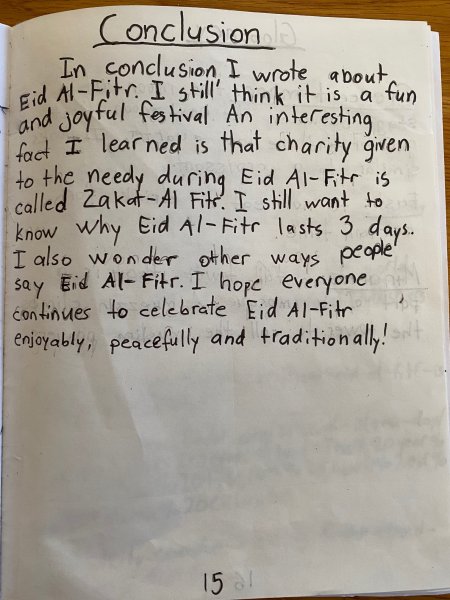 Conclusion
In conclusion I wrote about
Eid Al-Fitr. I still think it is a fun
and joyful festival An interesting
fact I learned is that charity given
to the needy during Eid Al-Fitr is
called Zakat-Al Fitr. I still want to
know why Eid Al-Fitr lasts 3 days.
I also wonder other ways people
say Eid Al-Fitr. I hope everyone
continues to celebrate Eid Al-Fitr
enjoyably, peacefully and traditionally!
15